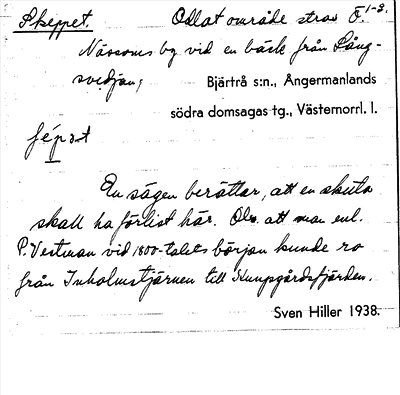 Skeppet. Odlat område strax Ö. 1-3.
Nässoms by vid en bäck från Lång-
svedjan;
Bjärtrå s:n., Ångermanlands
södra domsagas tg., Västernorrl. l.
En sägen berättar, att en skuta
skall ha förlist här. Obs. att man enl.
P. Vestman vid 1800-talets början kunde ro
från Inholmstjärnen till Kungsgårdsfjärden.
Sven Hiller 1938.